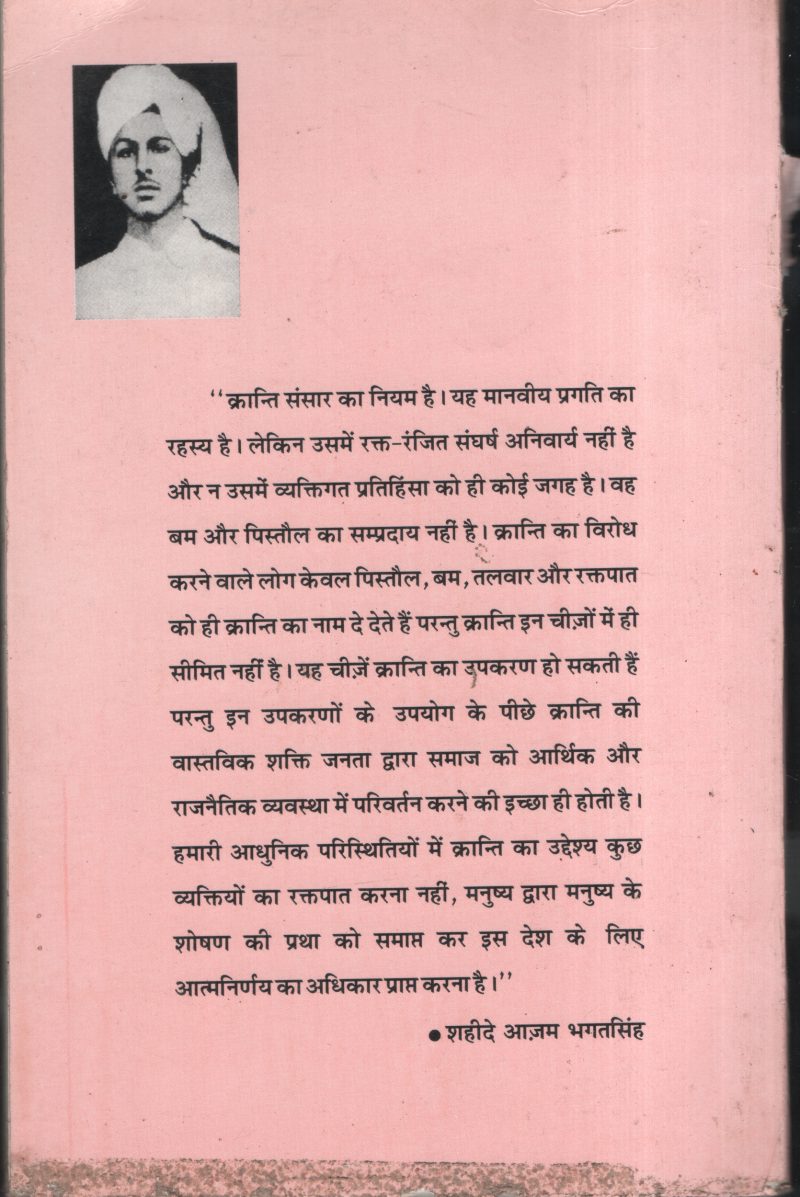 ‘‘क्रान्ति संसार का नियम है। यह मानवीय प्रगति का
रहस्य है। लेकिन उसमें रक्त-रंजित संघर्ष अनिवार्य नहीं है
और न उसमें व्यक्तिगत प्रतिहिंसा को ही कोई जगह है। वह
बम और पिस्तौल का सम्प्रदाय नहीं है। क्रान्ति का विरोध
करने वाले लोग केवल पिस्तौल, बम, तलवार और रक्तपात
को ही क्रान्ति का नाम दे देते हैं परन्तु क्रान्ति इन चीज़ों में ही
सीमित नहीं है। यह चीज़ें क्रान्ति का उपकरण हो सकती हैं
परन्तु इन उपकरणों के उपयोग के पीछे क्रान्ति की
वास्तविक शक्ति जनता द्वारा समाज को आर्थिक और
राजनैतिक व्यवस्था में परिवर्तन करने की इच्छा ही होती है।
हमारी आधुनिक परिस्थितियों में क्रान्ति का उद्देश्य कुछ
व्यक्तियों का रक्तपात करना नहीं, मनुष्य द्वारा मनुष्य के
शोषण की प्रथा को समाप्त कर इस देश के लिए
आत्मनिर्णय का अधिकार प्राप्त करना है।’’
● शहीदे आज़म भगतसिंह